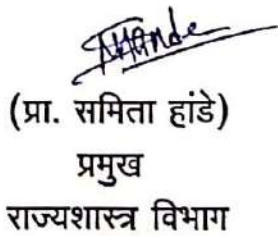 (प्रा. समिता हांडे)
प्रमुख
राज्यशास्त्र विभाग